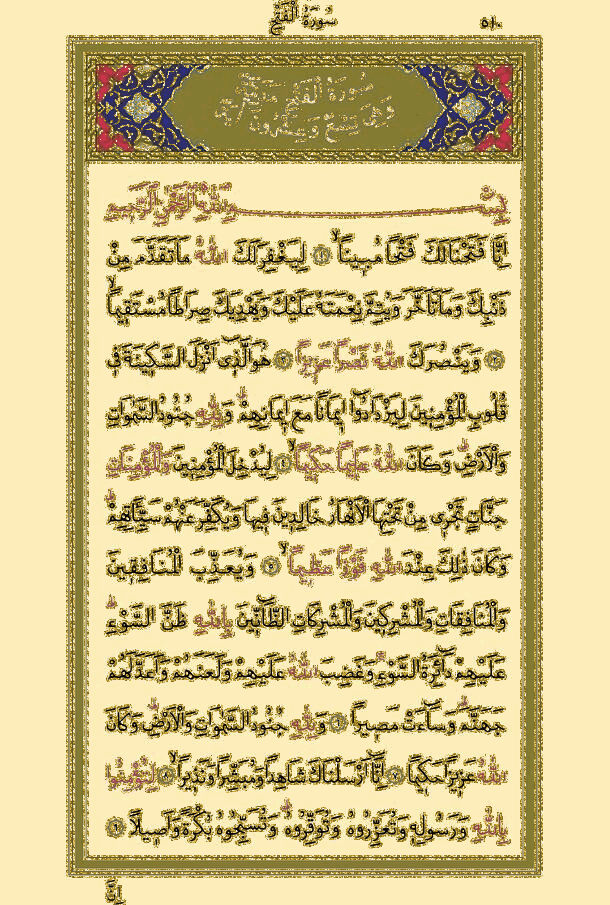 سُورَةُ الْفَتْحِ
٥١٠
سُورَةُ الْفَتْحِ مَدَنِيَّةٌ
وَهِيَ تِسْعٌ وَعِشْرُونَ اٰيَةً
بِسْمِ اللّٰهِ الرَّحْمٰنِ الرَّحِيمِ
اِنَّا فَتَحْنَا لَكَ فَتْحًا مُبِينًا ﴿١﴾ لِيَغْفِرَ لَكَ اللّٰهُ مَا تَقَدَّمَ مِنْ
ذَنْبِكَ وَمَا تَاَخَّرَ وَيُتِمَّ نِعْمَتَهُ عَلَيْكَ وَيَهْدِيَكَ صِرَاطًا مُسْتَقِيمًا
﴿٢﴾ وَيَنْصُرَكَ اللّٰهُ نَصْرًا عَزِيزًا ﴿٣﴾ هُوَ الَّذِٓى اَنْزَلَ السَّكِينَةَ فِى
قُلُوبِ الْمُؤْمِنِينَ لِيَزْدَادُٓوا اِيمَانًا مَعَ اِيمَانِهِمْ وَلِلّٰهِ جُنُودُ السَّمٰوَاتِ
وَالْاَرْضِ وَكَانَ اللّٰهُ عَلِيمًا حَكِيمًا ﴿٤﴾ لِيُدْخِلَ الْمُؤْمِنِينَ وَالْمُؤْمِنَاتِ
جَنَّاتٍ تَجْرِى مِنْ تَحْتِهَا الْاَنْهَارُ خَالِدِينَ فِيهَا وَيُكَفِّرَ عَنْهُمْ سَيِّـَٔاتِهِمْ
وَكَانَ ذٰلِكَ عِنْدَ اللّٰهِ فَوْزًا عَظِيمًا ﴿٥﴾ وَيُعَذِّبَ الْمُنَافِقِينَ
وَالْمُنَافِقَاتِ وَالْمُشْرِكِينَ وَالْمُشْرِكَاتِ الظَّٓانِّينَ بِاللّٰهِ ظَنَّ السَّوْءِ
عَلَيْهِمْ دَٓائِرَةُ السَّوْءِ وَغَضِبَ اللّٰهُ عَلَيْهِمْ وَلَعَنَهُمْ وَاَعَدَّ لَهُمْ
جَهَنَّمَ وَسَٓاءَتْ مَصِيرًا ﴿٦﴾ وَلِلّٰهِ جُنُودُ السَّمٰوَاتِ وَالْاَرْضِ وَكَانَ
اللّٰهُ عَزِيزًا حَكِيمًا ﴿٧﴾ اِنَّٓا اَرْسَلْنَاكَ شَاهِدًا وَمُبَشِّرًا وَنَذِيرًا ﴿٨﴾ لِتُؤْمِنُوا
بِاللّٰهِ وَرَسُولِهِ وَتُعَزِّرُوهُ وَتُوَقِّرُوهُ وَتُسَبِّحُوهُ بُكْرَةً وَاَصِيلًا ﴿٩﴾
اِنَّ